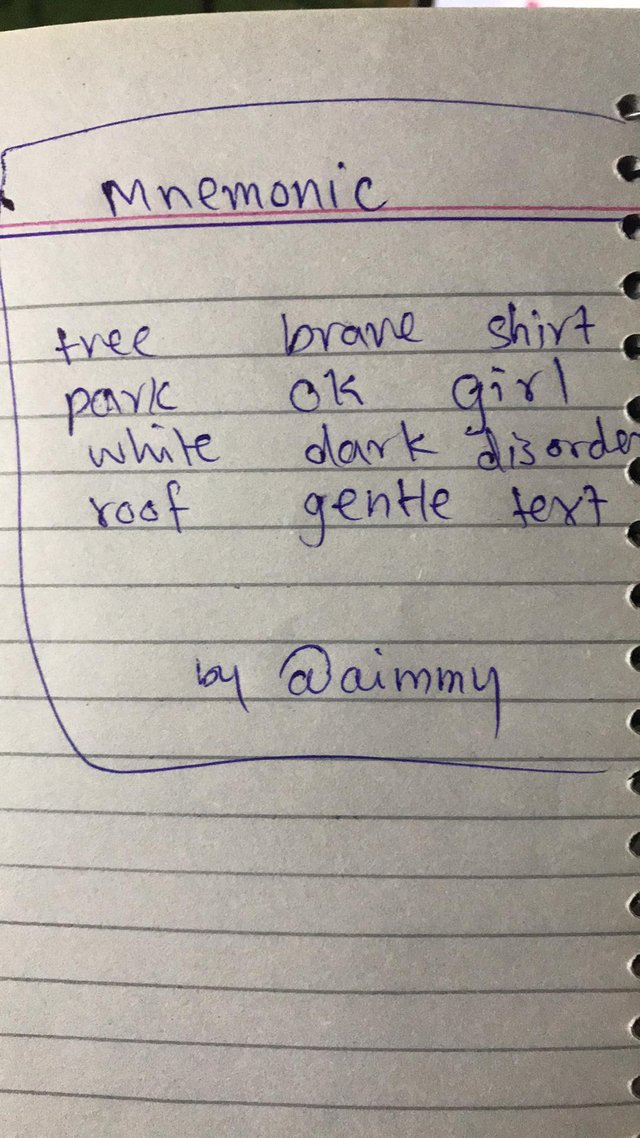 Mnemonic
tree brave shirt
park ok girl
white dark disorder
roof gentle text
by @aimmy